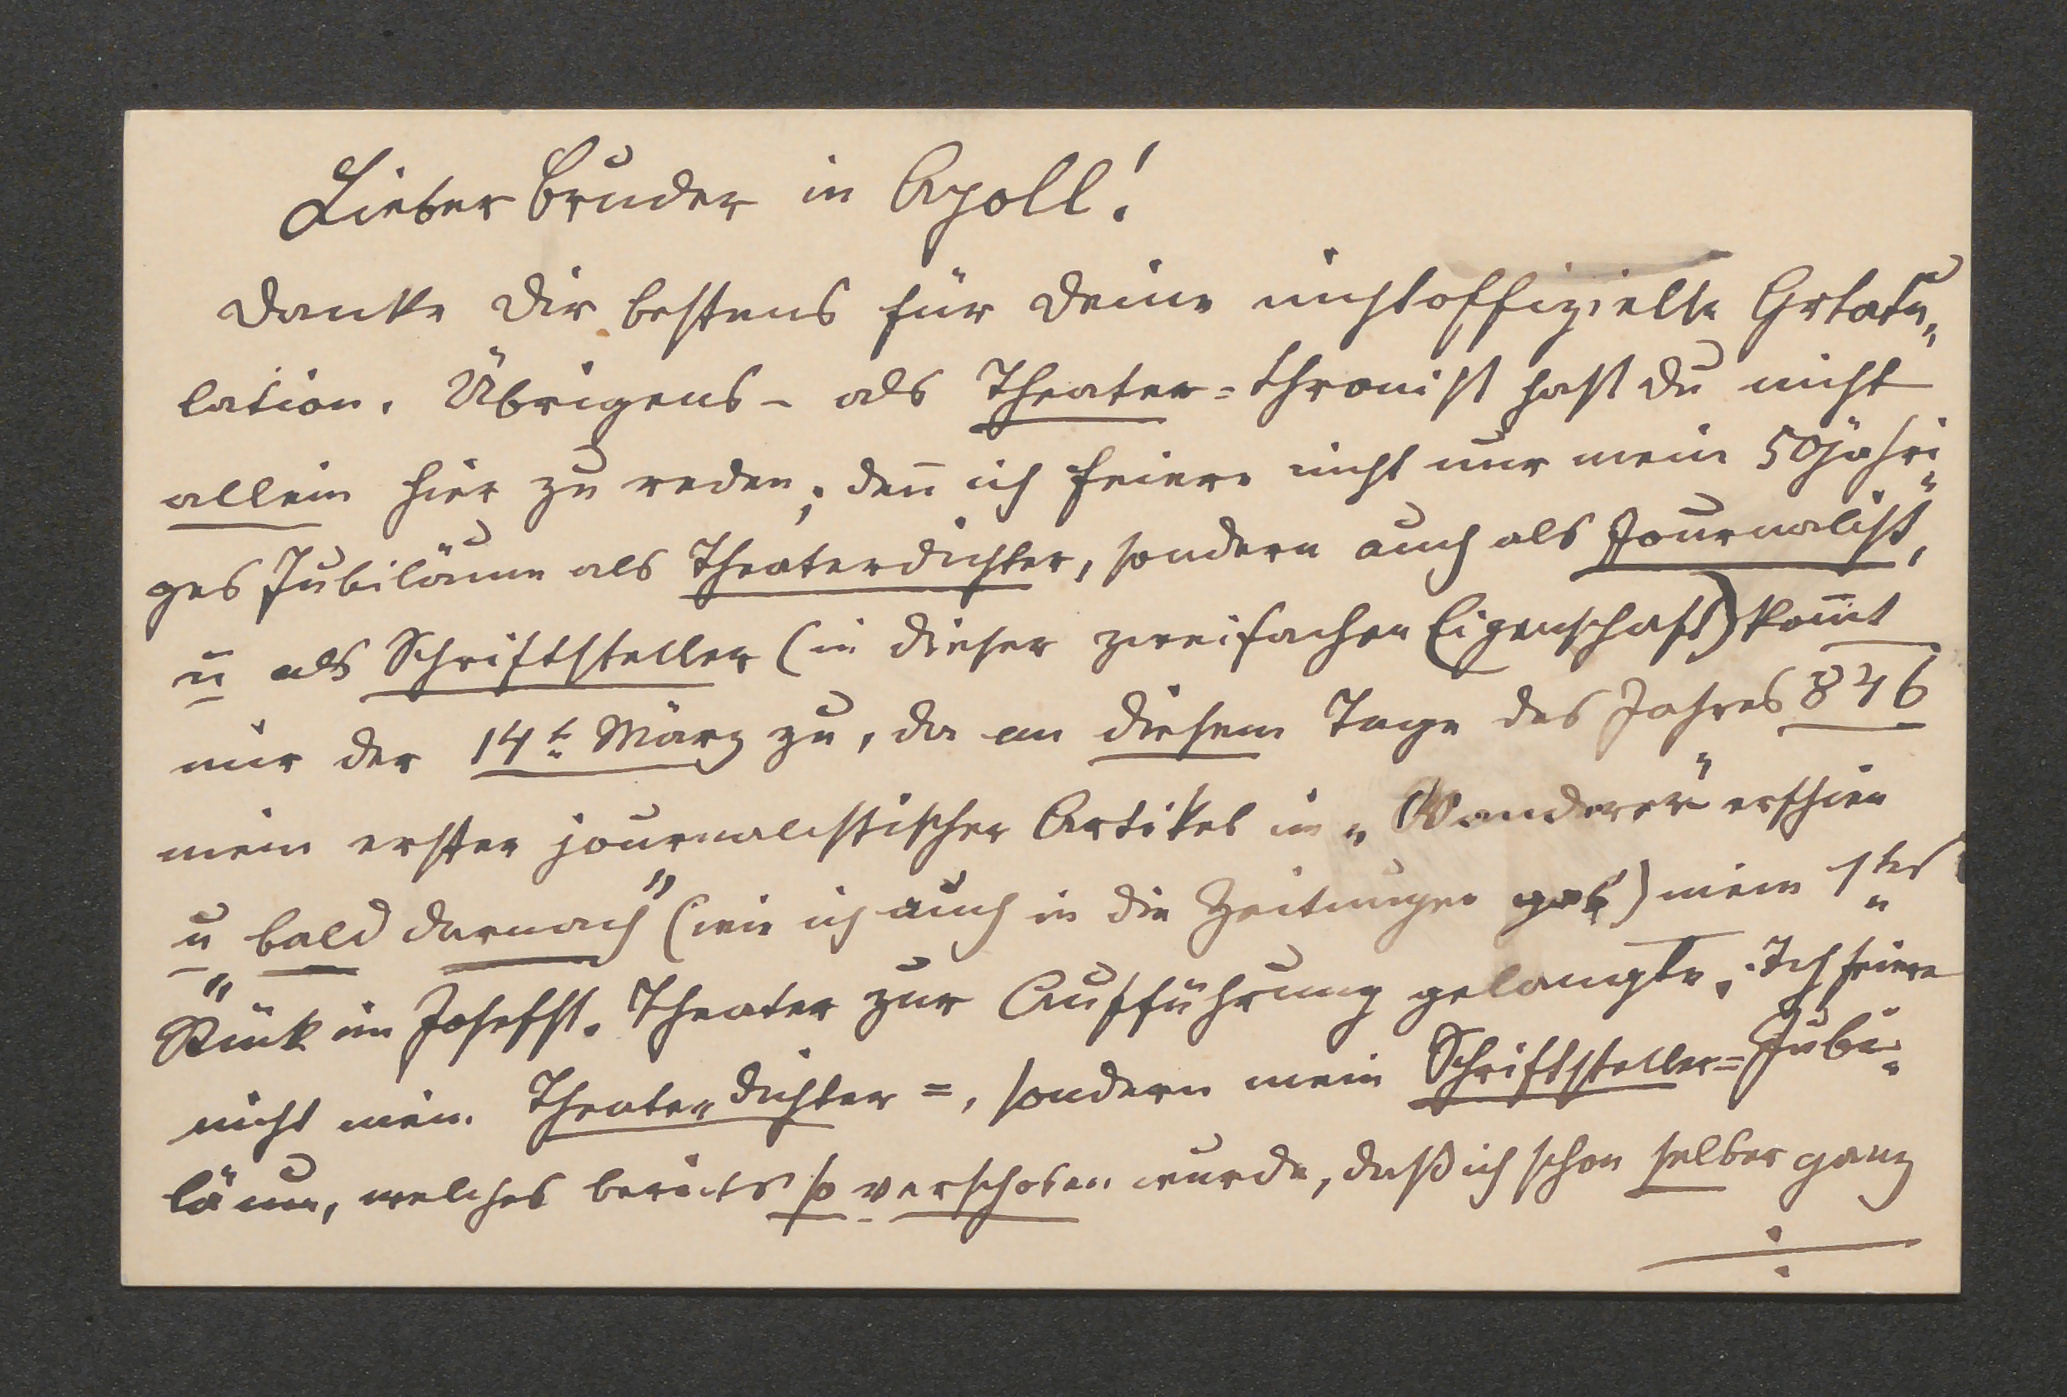 Lieber Bruder in Apoll!
Danke Dir bestens für Deine nichtoffizielle Grtatu„
lation. Übrigens – als Theater=Chronist hast Du nicht
allein hier zu reden; den̄ ich feiere nicht nur mein 50jähri„
ges Jubiläum als Theaterdichter, sondern auch als Journalist,
u als Schriftsteller (in dieser zweifachen Eigenschaft) kom̄t
mir der 14t. März zu, da an diesem Tage des Jahres 846
mein erster journalistischer Artikel im „Wanderer“ erschien
u „bald darnach“ (wie ich auch in die Zeitungen gab) mein 1tes
Stück im Josefst. Theater zur Aufführung gelangte. Ich feiere
nicht mein Theater„dichter=, sondern mein Schriftsteller=Jubi„
läum, welches bereits so verschoben wurde, daß ich schon selber ganz